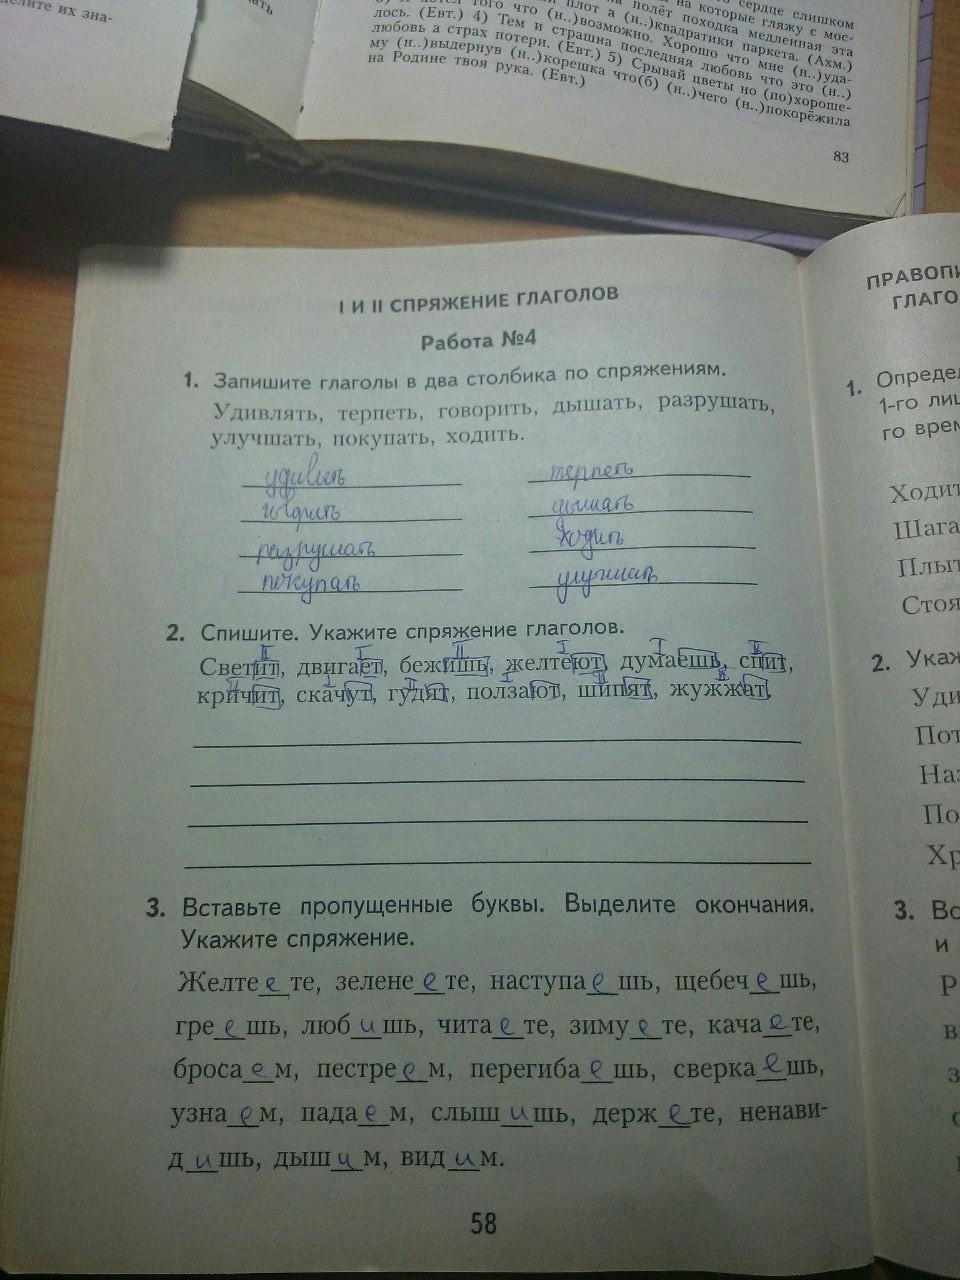 делите их зна-
сердце слишком
полёт походка медленная эта
лось. (Евт.) 4) Тем и страшна последняя любовь что это (н..)
любовь а страх потери. (Евт.) 5) Срывай цветы но (по)хороше-
му (н..)выдернув (н..)корешка что(б) (н..)чего (н..)покорёжила
на Родине твоя рука. (Евт.)
83
I И II СПРЯЖЕНИЕ ГЛАГОЛОВ
Работа №4
1. Запишите глаголы в два столбика по спряжениям.
Удивлять, терпеть, говорить, дышать, разрушать,
улучшать, покупать, ходить.
терпеть
дышать
разрушать ходить
покупать улучшать
2. Спишите. Укажите спряжение глаголов.
II I II I I II
Светит, двигает, бежишь, желтеют, думаешь, спит,
II I II I II II
кричит, скачут, гудят, ползают, шипят, жужжат.
3. Вставьте пропущенные буквы. Выделите окончания.
Укажите спряжение.
Желте е те, зелене е те, наступа е шь, щебеч е шь,
гре е шь, люб и шь, чита е те, зиму е те, кача е те,
броса е м, пестре е м, перегиба е шь, сверка е шь,
узна е м, пада е м, слыш и шь, держ е те, ненави-
д и шь, дыш и м, вид и м.
58
ПРАВОПИ
ГЛАГО
1. Определ
1-го лиц
го врем
Ходит
Шага
Плыт
Стоя
2. Укаж
Уди
Пот
Наз
По
Хр
3. Вс
и
Р
в
з